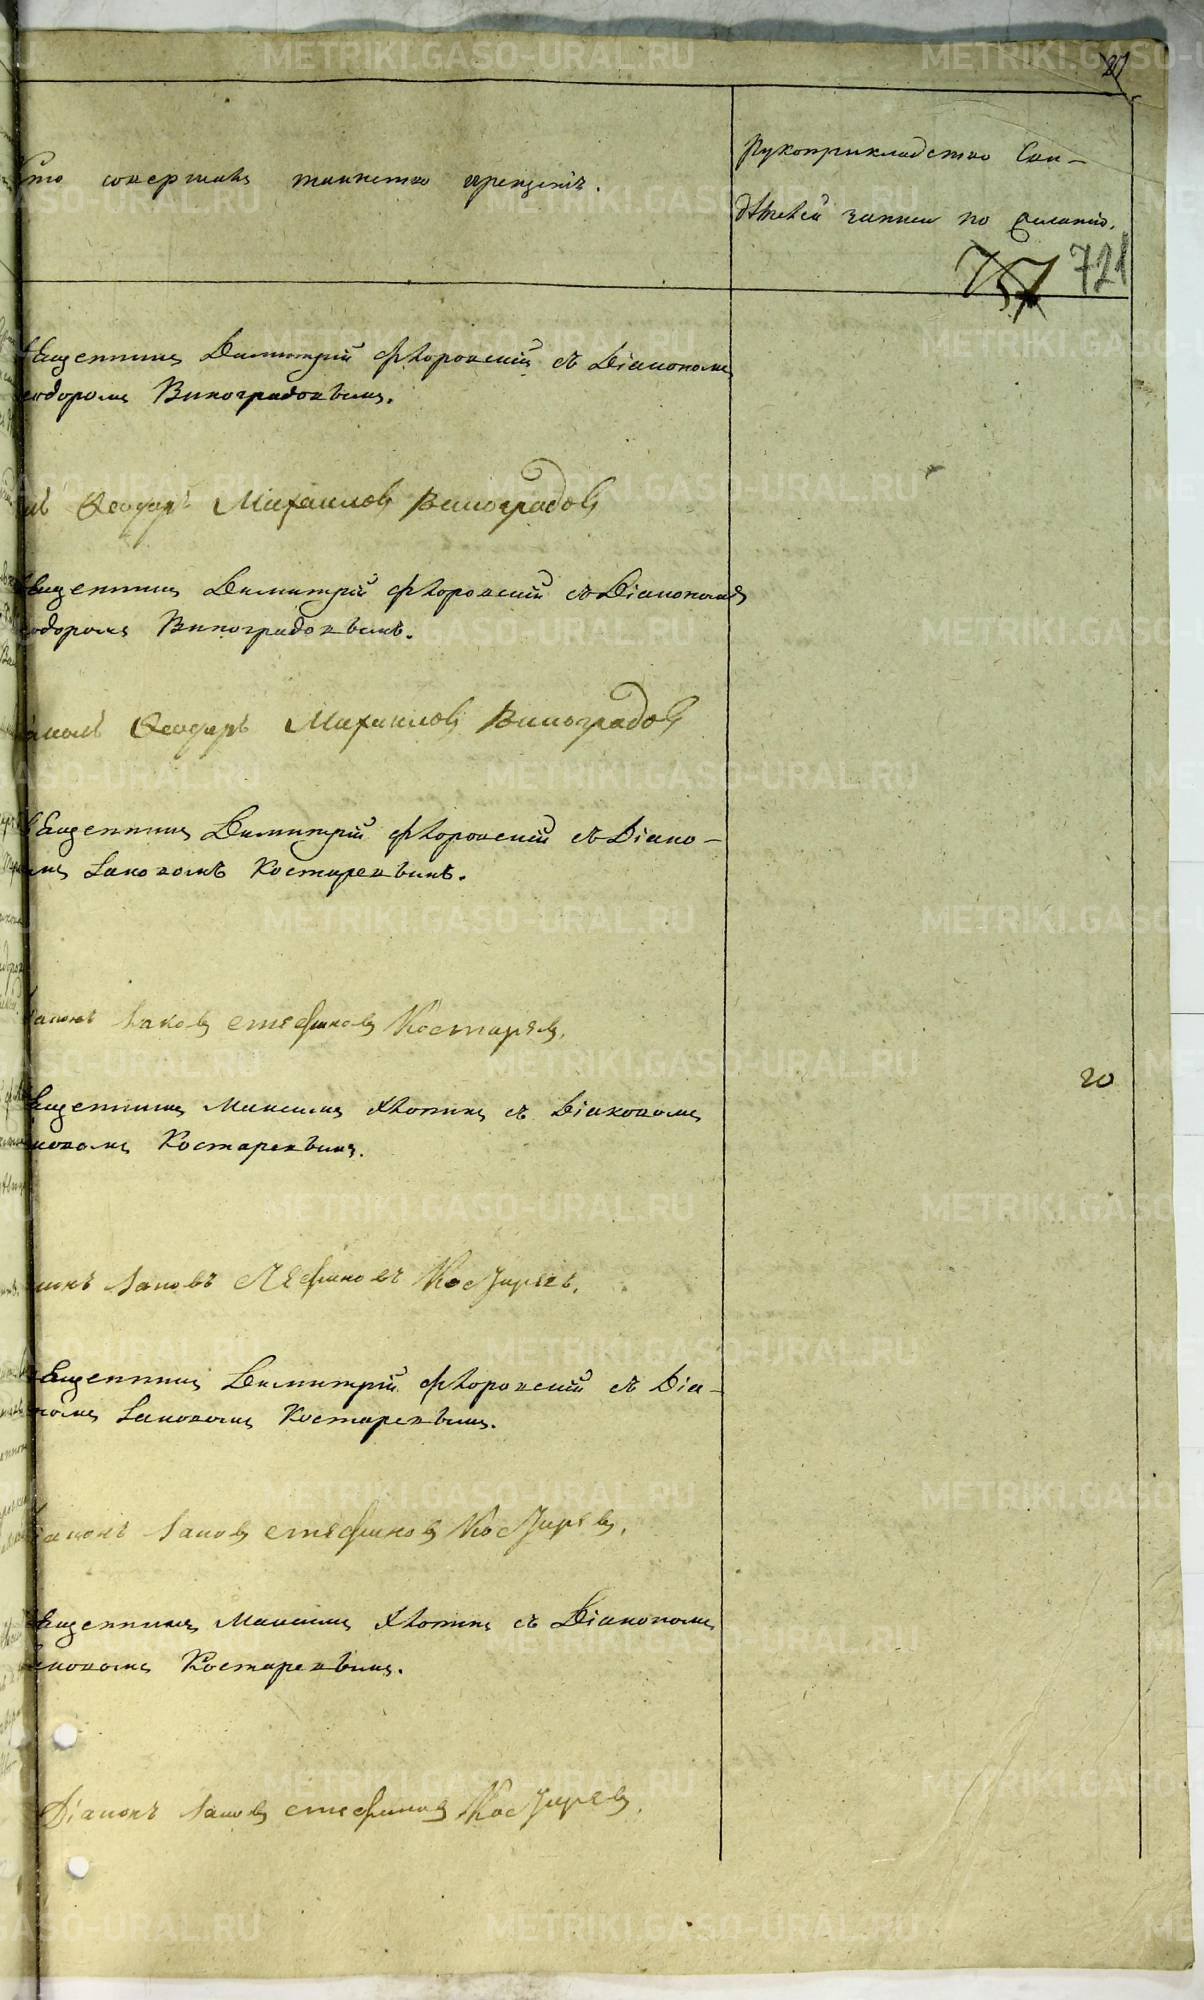 27
Кто совершалъ таинство крещенія.
Рукоприкладство Сви-
дѣтелей записи по желанію.
757 721
Священникъ Димитрій Флоровскій съ Діакономъ
Ѳеодоромъ Виноградовымъ.
Ѳеодоръ Михаиловъ Виноградовъ
Священникъ Димитрій Флоровскій съ Діакономъ
Ѳеодоромъ Виноградовымъ.
Діаконъ Ѳеодоръ Михаиловъ Виноградовъ
Священникъ Димитрій Флоровскій съ Діако-
номъ Іаковомъ Костаревымъ.
Діаконъ Іаковъ Стефановъ Костаревъ.
20
Священникъ Максимъ Хлопинъ съ Діакономъ
Іаковомъ Костаревымъ.
Діаконъ Іаковъ Стефановъ Костаревъ.
Священникъ Димитрій Флоровскій съ Діа-
кономъ Іаковомъ Костаревымъ.
Діаконъ Іаковъ Стефановъ Костаревъ.
Священникъ Максимъ Хлопинъ съ Діакономъ
Іаковомъ Костаревымъ.
Діаконъ Іаковъ Стефановъ Костаревъ.
METRIKI.GASO-URAL.RU